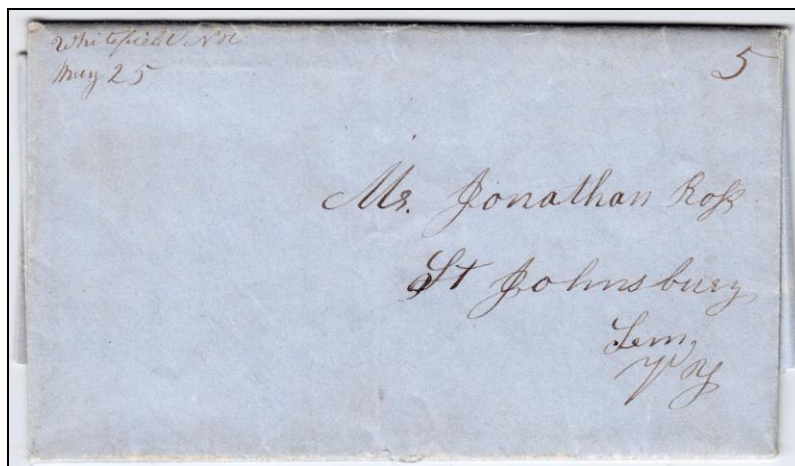 Whitefield N H
May 25
5
Mr. Jonathan Ross
St Johnsbury
Vt